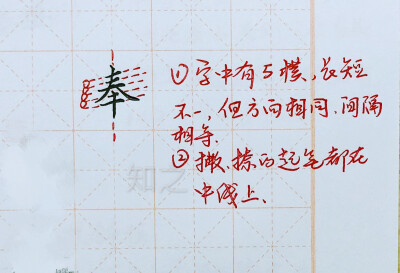 奉
①字中有5横,长短
不一,但方向相同、间隔
相等.
②撇、捺的起笔都在
中线上.
知乎